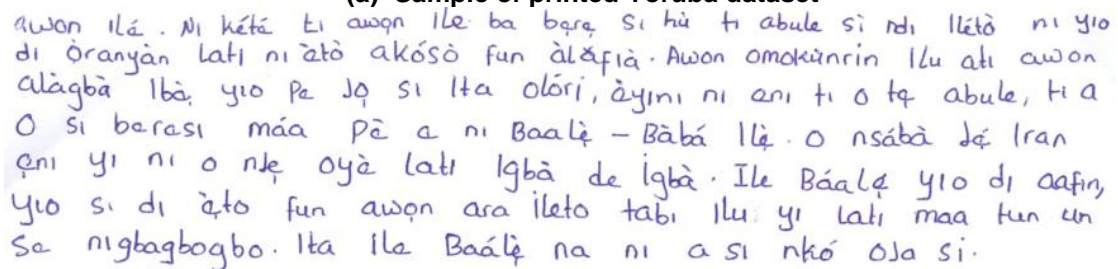 (a) Sample of printed Yoruba dataset
awon Ilé. Ni kété ti awọn Ile ba bẹrẹ si hù ti abule sì ndi Ilétò ni yio
di Òranyàn Lati ni ètò akósò fun àlàfià. Awon omokùnrin Ilu ati awon
alàgbà Ibà, yio Pe Jọ si Ita olórí, àyini ni ẹni ti o tẹ abule, ti a
O si berẹsi máa Pè e ni Baalẹ̀ – Bàbá Ilẹ̀. O nsábà Jẹ́ Iran
ẹni yi ni o nJẹ oyè Lati Igbà de Ìgbà. Ile Báalẹ yio di aafin,
yio si di ẹ̀to fun awọn ara ileto tabi Ilu yi Lati maa tun un
Se nigbagbogbo. Ita ile Baálẹ̀ na ni a si nkó OJa si.